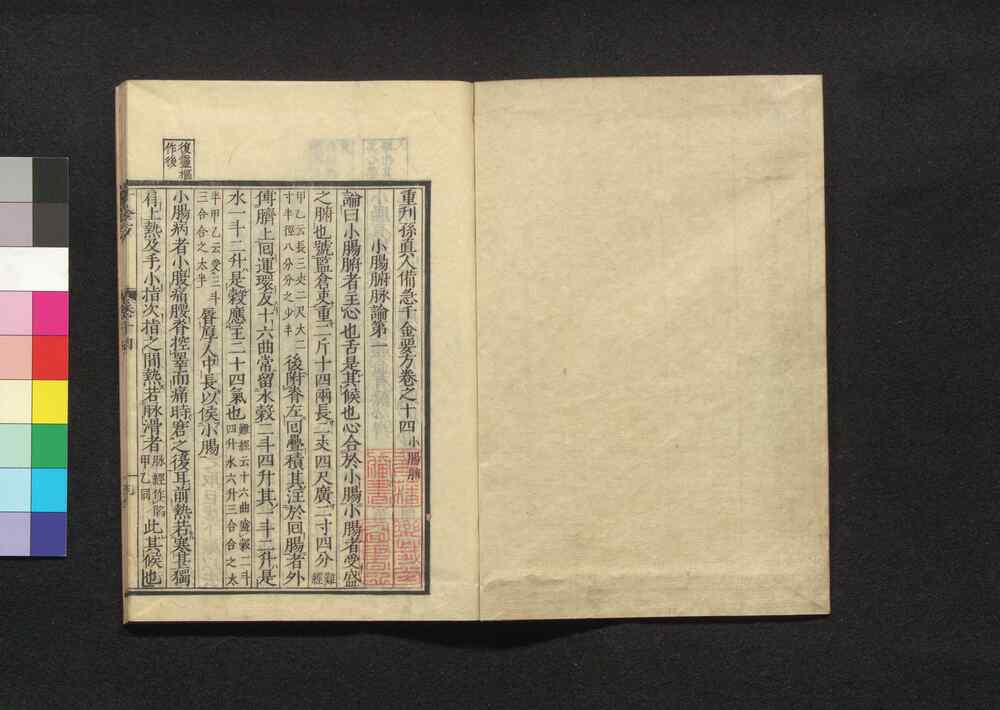 重刋孫真人備急千金要方卷之十四 小腸腑
小腸腑脉論第一
論曰小腸腑者主心也舌是其候也心合於小腸小腸者受盛
之腑也號監倉吏重二斤十四兩長二丈四尺廣二寸四分 難經
甲乙云長三丈二尺大二
寸半徑八分分之少半
後附脊左回疊積其注於回腸者外
傅臍上回運環反十六曲常留水穀二斗四升其一斗二升是
水一斗二升是穀應主二十四氣也
難經云十六曲盛穀二斗
四升水六升三合合之太
半甲乙云受三斗
三合合之太半
脣厚人中長以候小腸
小腸病者小腹痛腰脊控睪而痛時窘之復耳前熱若寒甚獨
肩上熱及手小指次指之間熱若脉滑者
脉經作陷
甲乙同
此其候也
復靈樞
作後